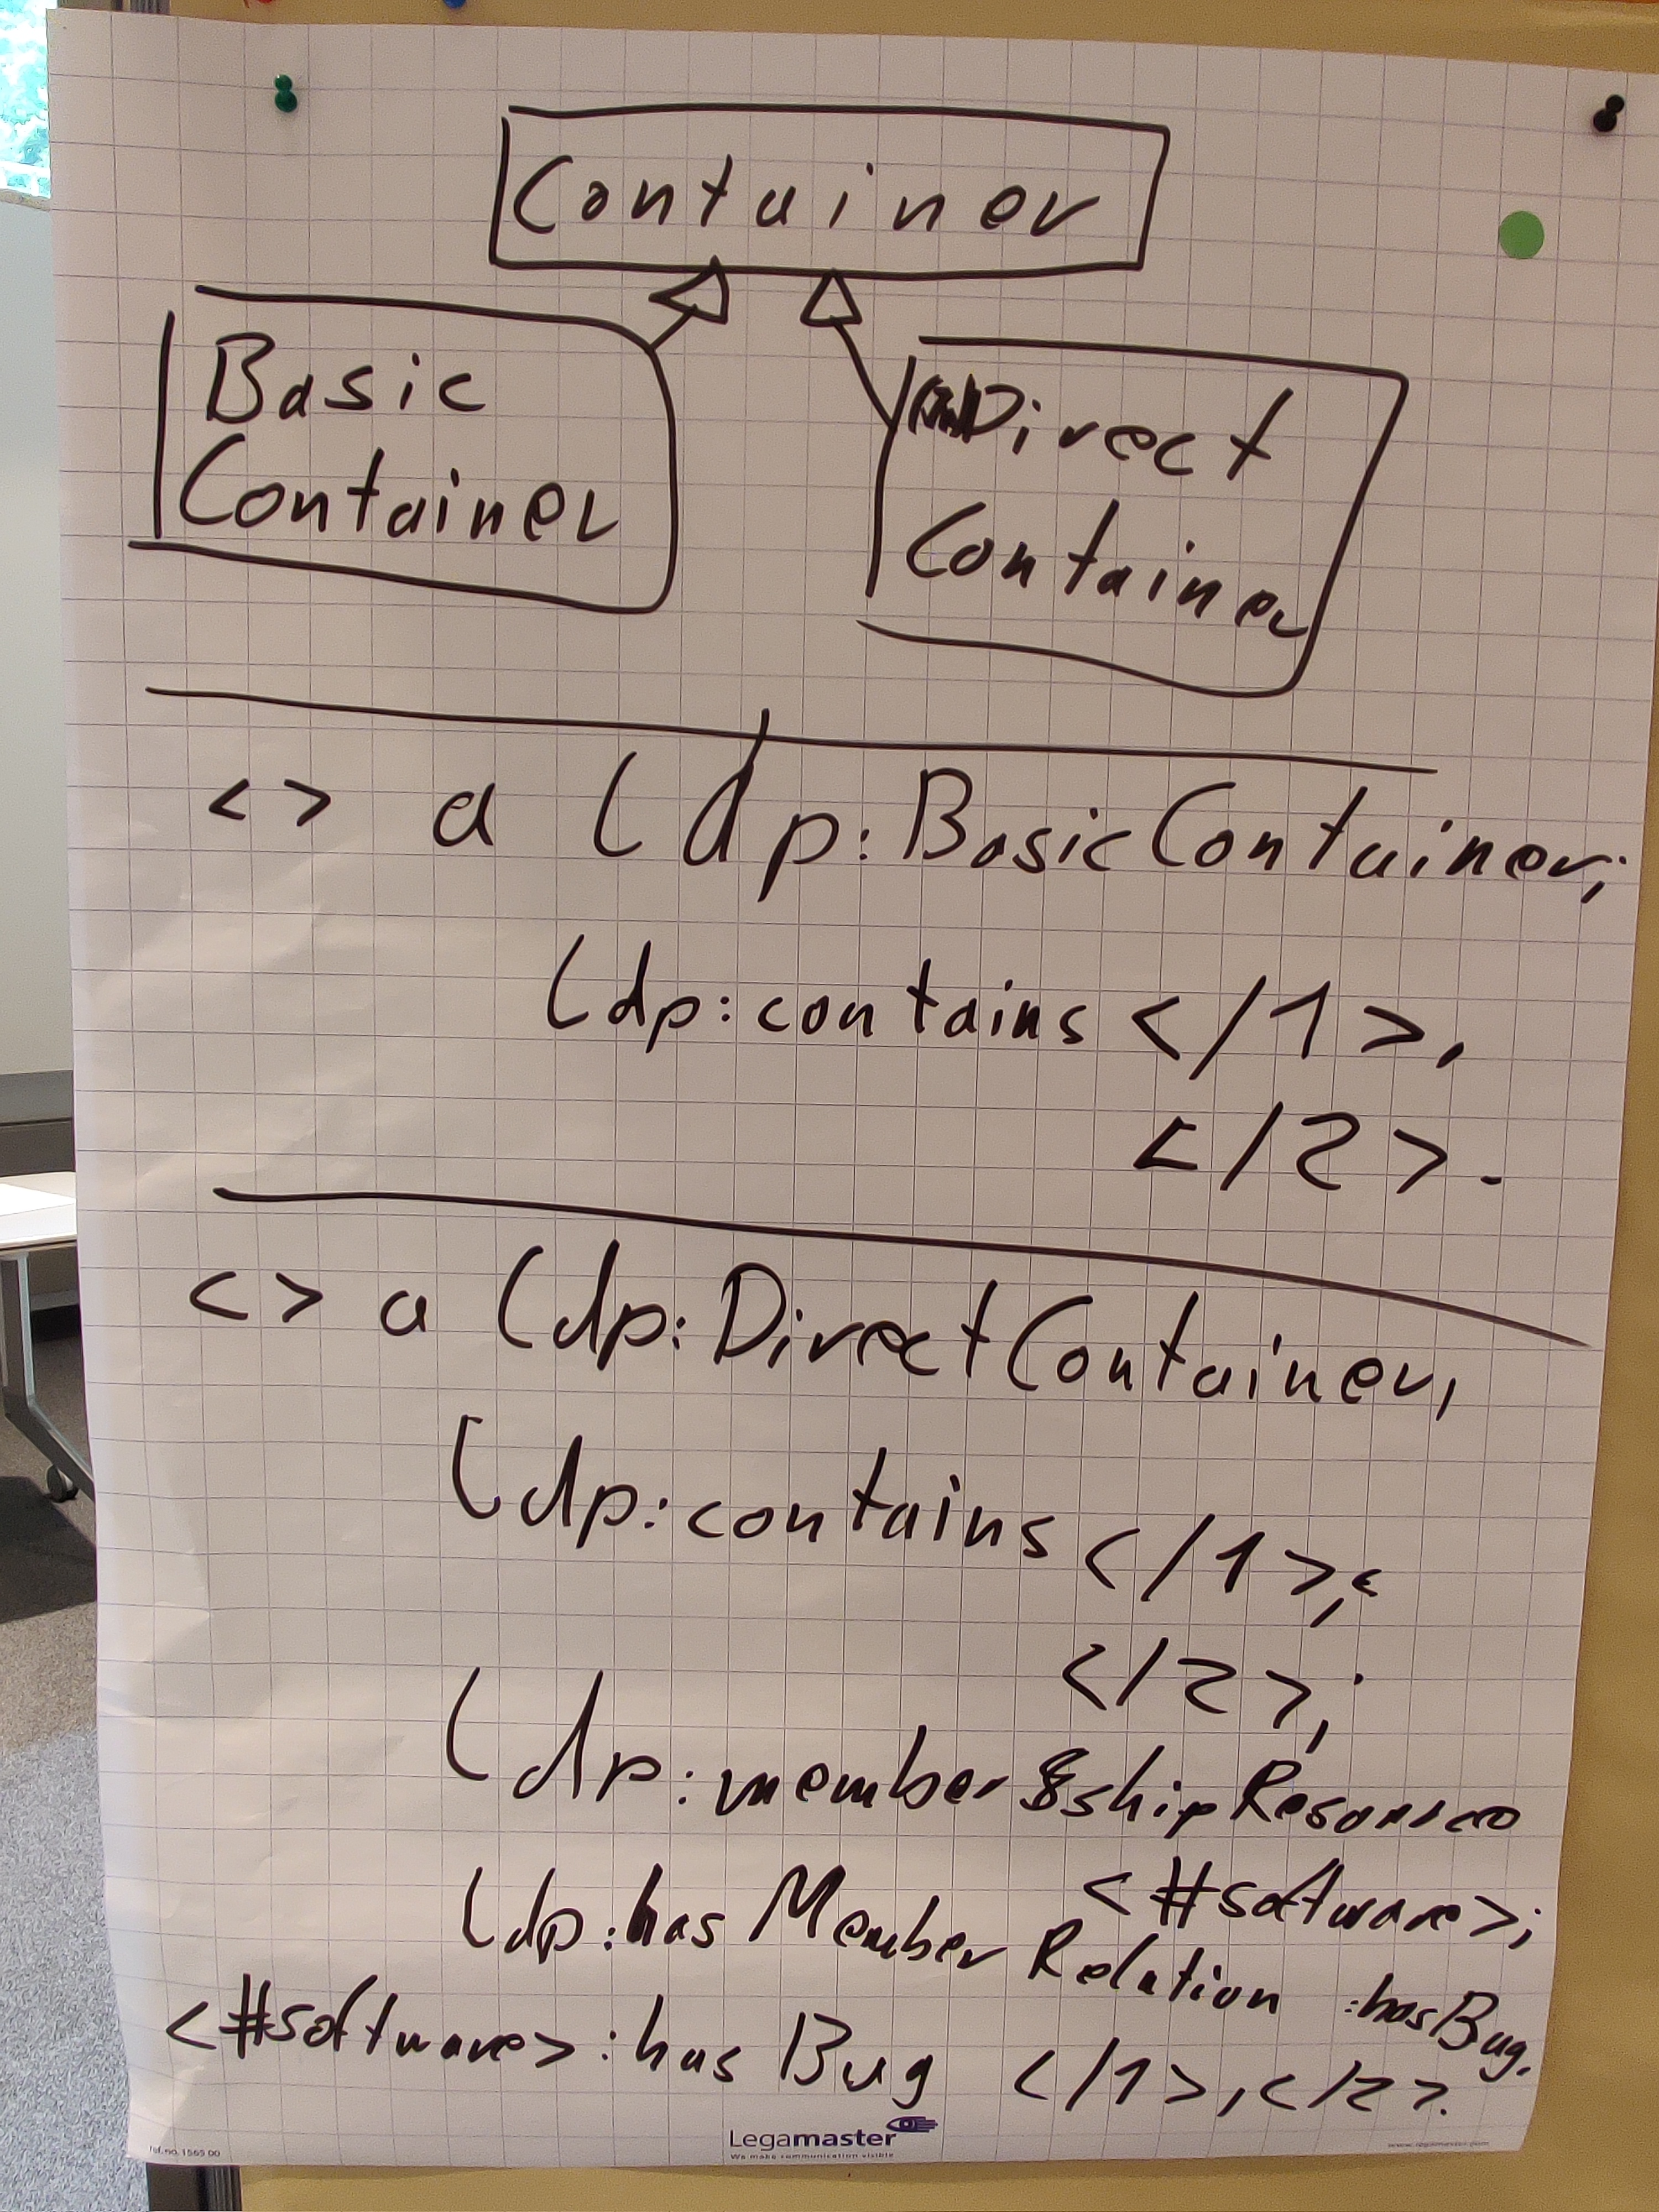 Container
Basic
Container
Direct
Container
<> a ldp:BasicContainer;
ldp:contains </1>,
</2>.
<> a ldp:DirectContainer,
ldp:contains </1>,
</2>;
ldp:membershipResource
<#software>;
ldp:hasMemberRelation :hasBug.
<#software> :hasBug </1>,</2>.
Legamaster
We make communication visible